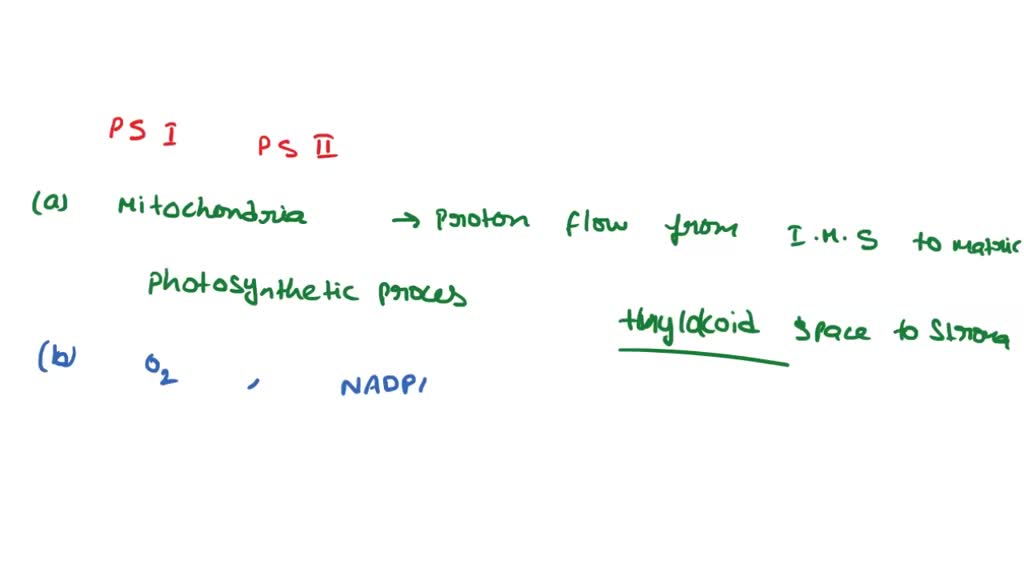 PS I PS II
(a) Mitochondria → Proton flow from I.M.S to matric
Photosynthetic proces
thylakoid space to stroma
(b) O2 , NADP/